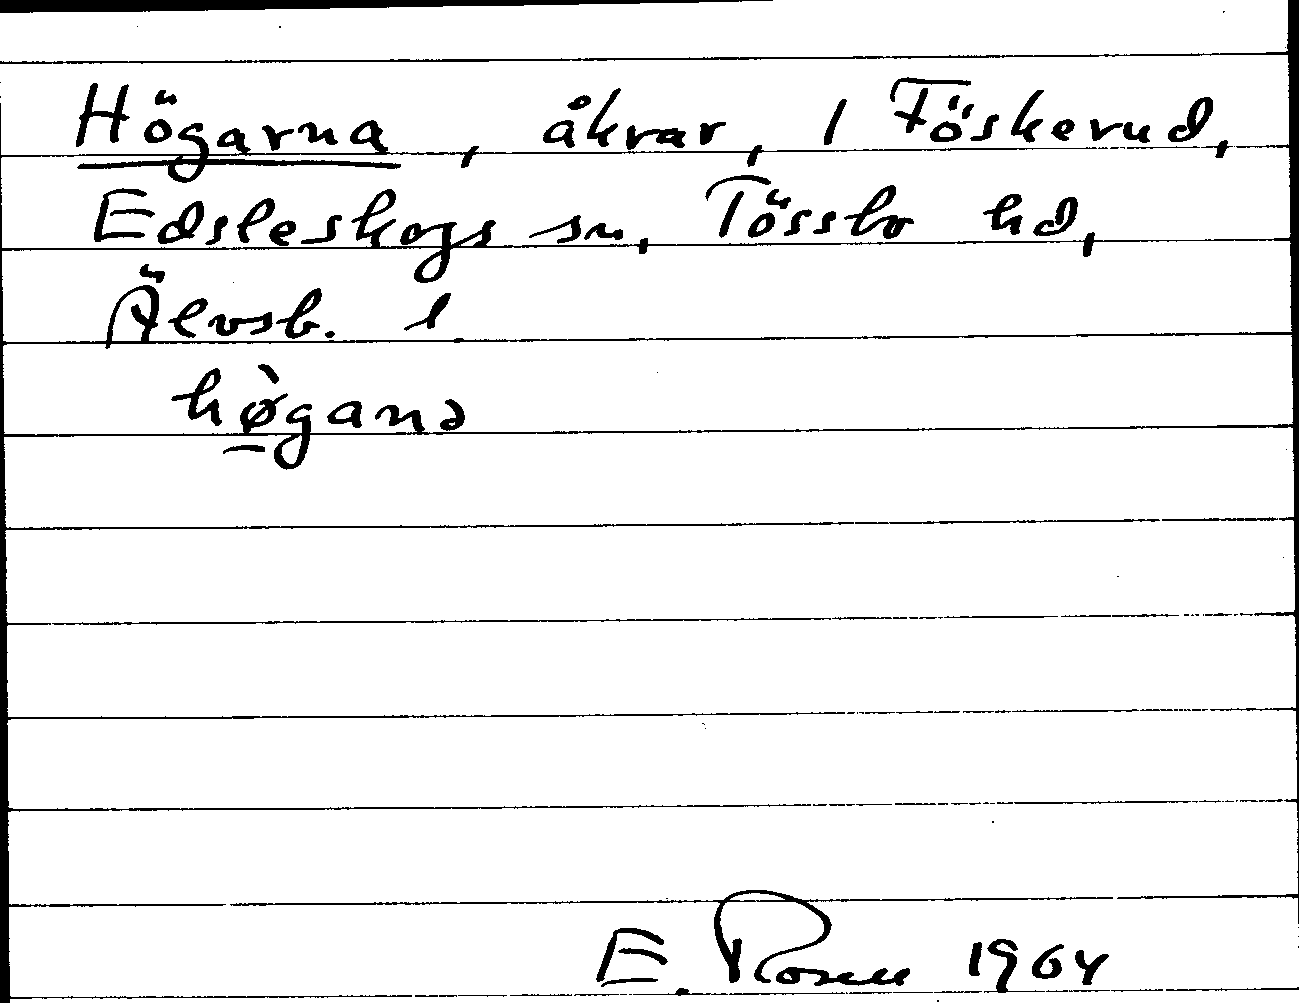 Högarna, åkrar, i Föskerud,
Edsleskogs sn, Tössbo hd,
Älvsb. l
hø̱̀ganə
E. Rosen 1964